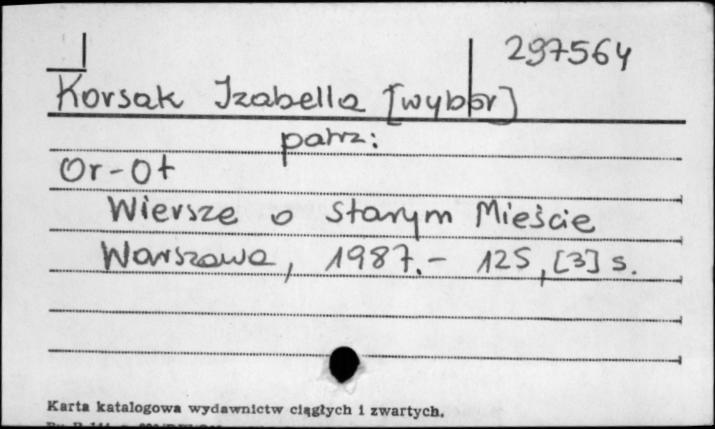 297564
Korsak Izabella [wybór]
patrz:
Or-Ot
Wiersze o Starym Mieście
Warszawa, 1987.- 125, [3] s.
Karta katalogowa wydawnictw ciągłych i zwartych.